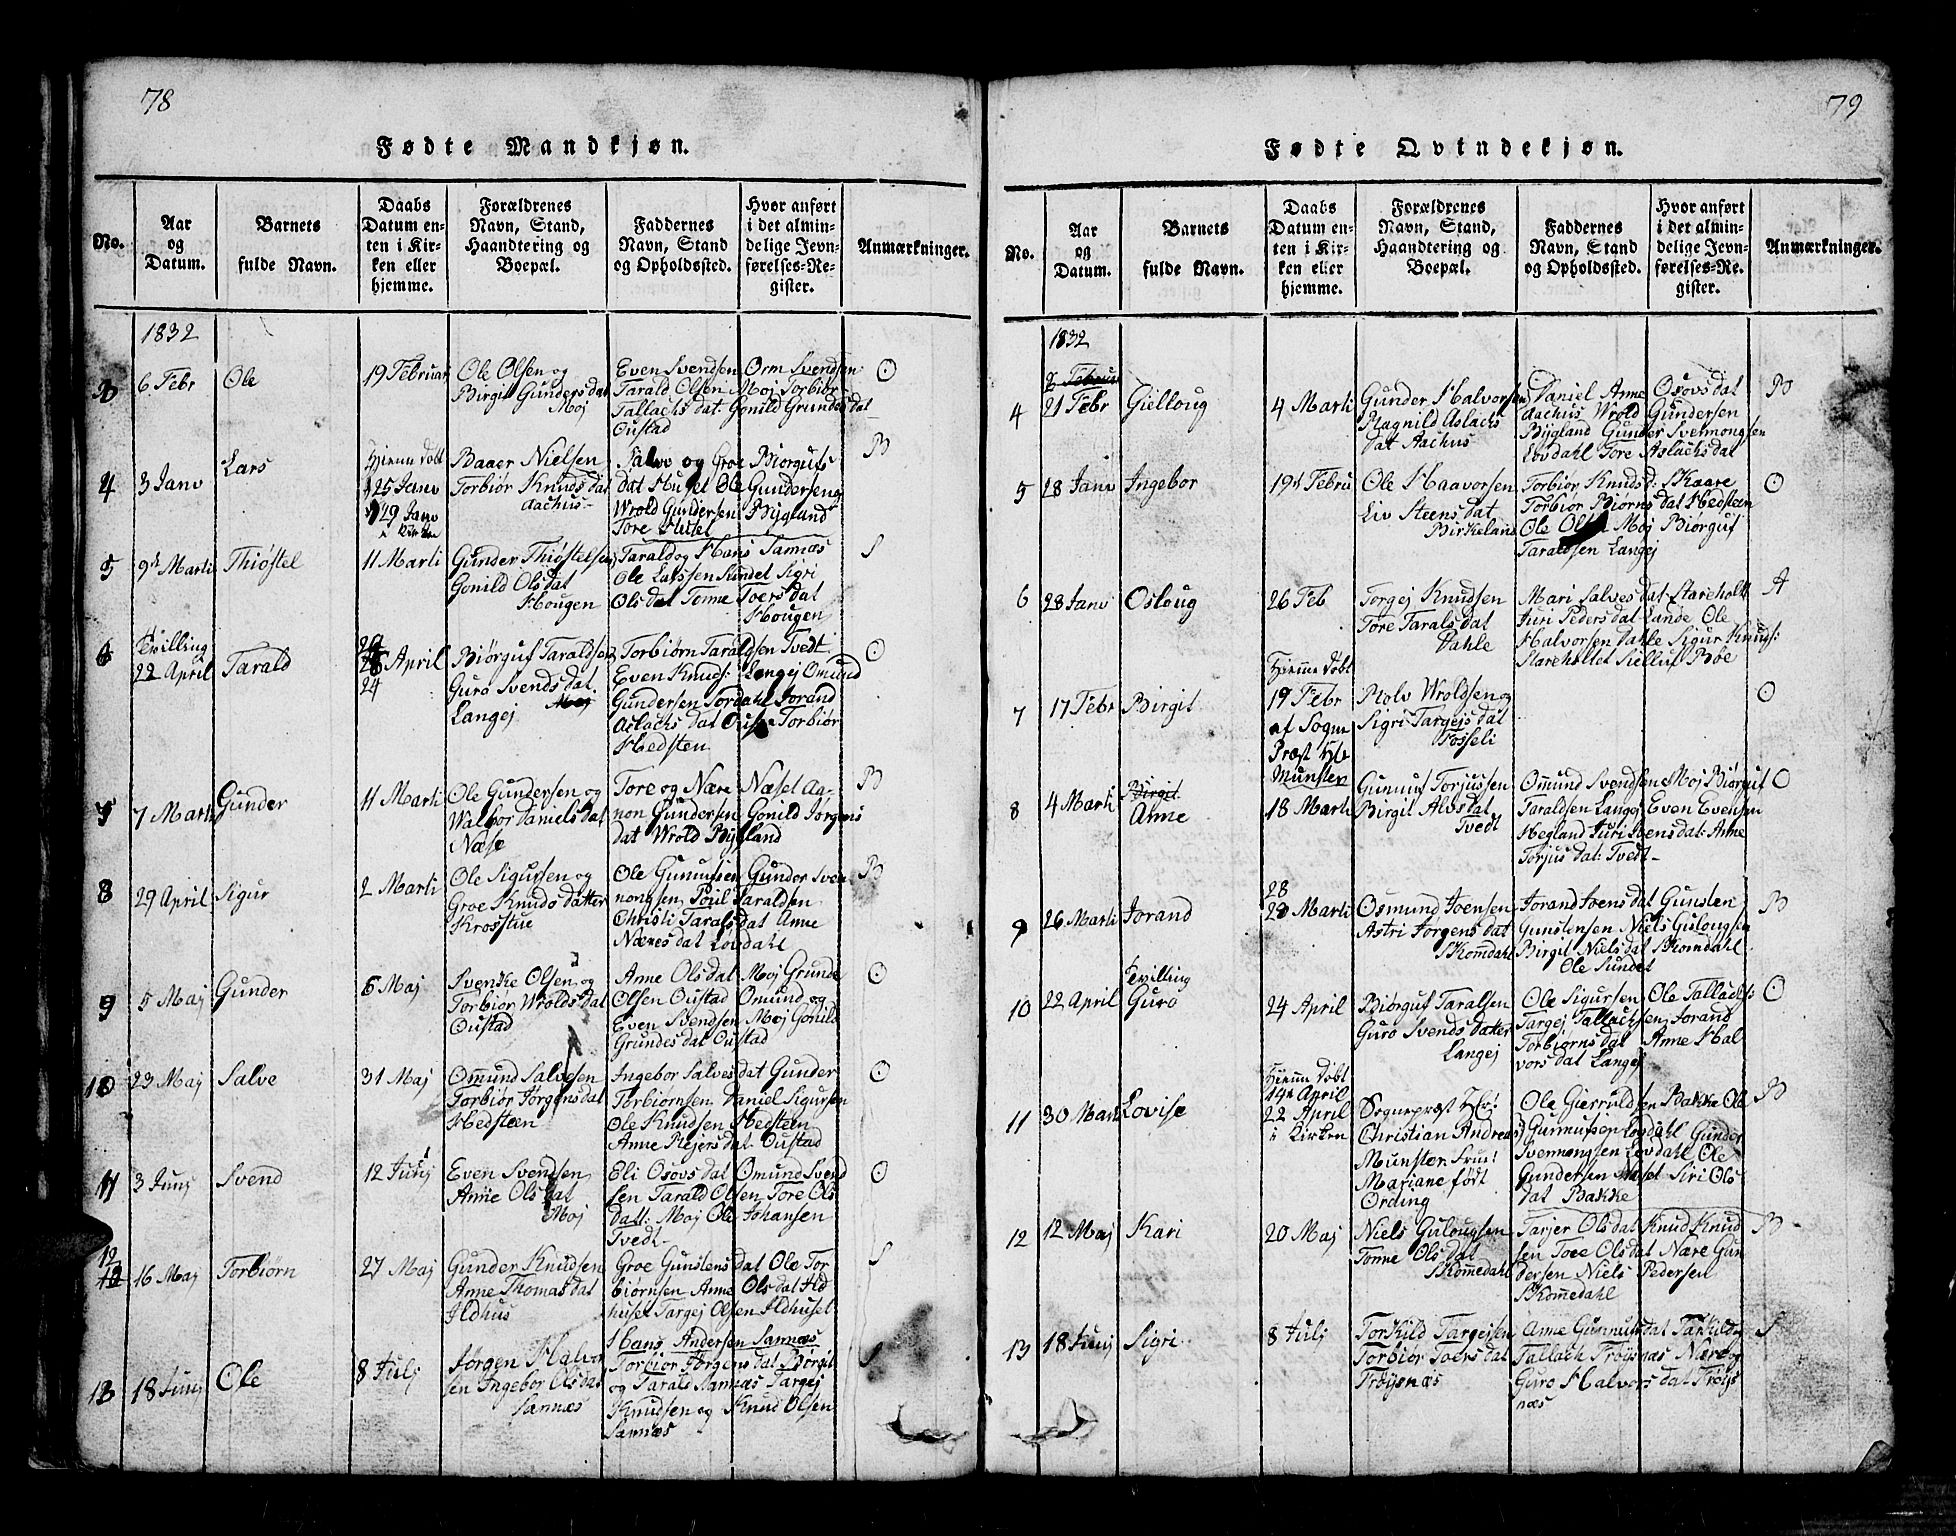 78
Fødte Mandkjøn.
No.
Aar og Datum.
Barnets fulde Navn.
Daabs Datum enten i Kirken eller hjemme.
Forældrenes Navn, Stand, Haandtering og Boepæl.
Faddernes Navn, Stand og Opholdssted.
Hvor anført i det almindelige Jevnførelses-Register.
Anmærkninger.
1832
3 6 Febr Ole 19 Februar
Ole Olsen og
Birgit Gunders dat
Moj
Even Svendsen Orm Svendsen
Tarald Olsen Moj Torbiør
Tallachs dat. Gonild Grundes dat
Oustad
O
4 3 Janv Lars
Hjemme døbt
25 Janv
29 Janv
i Kirken
Baaer Nielsen
Torbiør Knuds dat
Aachus
Salve og Groe Biorgufs
dat Huset Ole Gundersen
Wrold Gundersen Bygland
Tore Huset
B
5 9d Marti Thiøstel 11 Marti
Gunder Thiøstelsen
Gonild Ols dat
Hougen
Tarald og Hans Sannæs
Ole Larssen Sundet Sigri
Ols dat Tonne Toers dat
Hougen
S
6 Tvilling
22 April Tarald
April
24
Biørguf Taraldsen
Guro Svends dat
Langej
Torbiørn Taraldsen Tvedt
Even Knuds: Langej Omund
Gundersen Tordahl Jorand
Aslachs dat Torbiør
Hedsten
O
7 7 Marti Gunder 11 Marti
Ole Gundersen og
Walbor Daniels dat
Næse
Tore og Nære Næset Aa-
non Gundersen Gonild Jørgens
dat Wrold Bygland
B
8 29 April Sigur 2 Marti
Ole Sigursen og
Groe Knuds datter
Krosstue
Ole Gunufsen Gunder Sven
nongsen Poul Taraldsen
Christi Tarals dat Anne
Næres dat Løvdahl
B
9 5 Maj Gunder 6 Maj
Svenke Olsen og
Torbiør Wrolds dat
Oustad
Anne Ols dat Moj Grunde
Olsen Oustad Omund og
Even Svendsen Moj Gonild
Grundes dat Oustad
O
10 23 Maj Salve 31 Maj
Omund Salvesen
Torbiør Jørgens dat
Hedsteen
Ingebor Salves dat Gunder
Torbiornsen Daniel Sigursen
Ole Knudsen Hedsteen
Anne Rejers dat Oustad
O
11 3 Junj Svend 12 Julj
Even Svendsen
Anne Ols dat
Moj
Eli Osovs dat Omund Svend
sen Tarald Olsen Tore Ols
datt: Moj Ole Johansen
Tvedt
O
12 16 Maj Torbiørn 27 Maj
Gunder Knudsen
Anne Thomas dat
Ildhus
Groe Gunstens dat Ole Tor
biørnsen Anne Ols dat Ild
huset Targej Olsen Ildhuset
S
13 18 Junj Ole 8 Julj
Jørgen Halvor
sen Ingebor Ols dat
Sannæs
Hans Andersen Sannæs
Torbiør Jørgens dat Børgit
og Tarald Sannæs Targej
Knudsen og Knud Olsen
Sannæs
S
79
Fødte Qvindekjøn.
No.
Aar og Datum.
Barnets fulde Navn.
Daabs Datum enten i Kirken eller hjemme.
Forældrenes Navn, Stand, Haandtering og Boepæl.
Faddernes Navn, Stand og Opholdssted.
Hvor anført i det almindelige Jevnførelses-Register.
Anmærkninger.
1832
4 21 Febr Gielloug 4 Marti
Gunder Halvorsen
Ragnild Aslachs
dat Aachus
Daniel Anne Osovs dat
Aachus Wrold Gundersen
Bygland Gunder Svennongsen
Lovdahl Tore Aslachs dat
B
5 28 Janv Ingebor 19d Febru
Ole Haavorsen
Liv Steens dat
Birkeland
Torbiør Knuds d: Skaare
Torbiør Biørns dat Hedsteen
Ole Olsen Moj Biørguf
Taraldsen Langej
O
6 28 Janv Osloug 26 Feb
Torgej Knudsen
Tore Tarals dat
Dahle
Mari Salves dat Stareholt
Juri Peders dat Lande Ole
Halvorsen Dahle Sigur Knuds:
Stareholtet Sielluf Bøe
A
7 17 Febr Birgit
Hjemme døbt
19 Febr
af Sogne
Præst Hr
Munster
Rolv Wroldsen og
Sigri Targejs dat
Fosseli
O
8 4 Marti Anne 18 Marti
Gunuf Torjussen
Birgit Alvs dat
Tvedt
Omund Svendsen Moj Biørguf
Taraldsen Langej Even Evensen
Hegland Juri Ivens dat: Anne
Torjus dat: Tvedt
O
9 26 Marti Jorand
28
28 Marti
Osmund Joensen
Astri Jørgens dat
Skomdahl
Jorand Joens dat Gunsten
Gunstensen Niels Gislougsen
Birgit Niels dat Skomdahl
Ole Sundet
B
10 22 April Tvilling
Guro 24 April
Biørguf Taralsen
Guro Svends datter
Langej
Ole Sigursen Ole Tallachs:
Targej Tallachsen Jorand
Torbiørns dat Anne Hal
vors dat Langej
O
11 30 Marti Lovise
Hjemme døbt
14n April
22 April
i Kirken
Sognepræst Hr:
Christian Andreas
Munster Frue:
Mariane født
Ording
Ole Gierruldsen Bakke Ole
Gunnufsen Lovdahl Gunder
Svennongsen Lovdahl Ole
Gundersen Næset Siri Ols
dat Bakke
B
12 12 Maj Kari 20 Maj
Niels Gulougsen
Tonne Ols dat
Skomedahl
Tarjer Ols dat Knud Knud
sen Tore Ols dat Nære Gun
dersen Niels Pedersen
Skomedahl
B
13 18 Junj Sigri 8 Julj
Torkild Targejsen
Torbiør Toers dat
Frøysnæs
Anne Gunnufs dat Tarkild og
Tallach Frøysnæs Nære og
Guro Halvors dat Frøys
næs
S